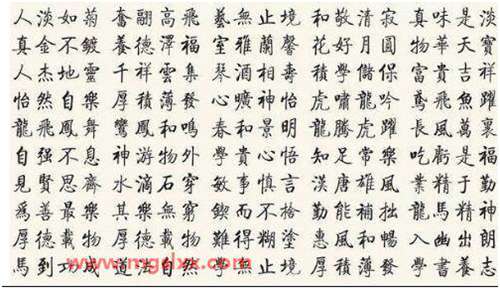 人淡如菊 奮翮高飛 藝無止境 和敬清寂 真味是淡
真金不鍍 養德澤福 室雅蘭馨 花好月圓 物華天寶
人杰地靈 千祥雲集 琴酒相壽 積學儲 富貴吉祥
怡然自樂 厚積薄發 心曠神怡 虎嘯龍吟 鳶飛魚躍
龍飛鳳舞 鸞鳳和鳴 春和景明 龍騰虎躍 長風萬裏
自强不息 神游物外 學貴心悟 知足常樂 吃虧是福
見賢思齊 水滴石穿 敏事慎言 漢唐雄風 業精于勤
爲善最樂 其樂無窮 鍥而不捨 勤能補拙 龍馬精神
厚德載物 難得糊塗 惠風和暢 入幽出朗
馬到功成 道法自然 學無止境 厚積薄發 書養志
www.mgalxx.com